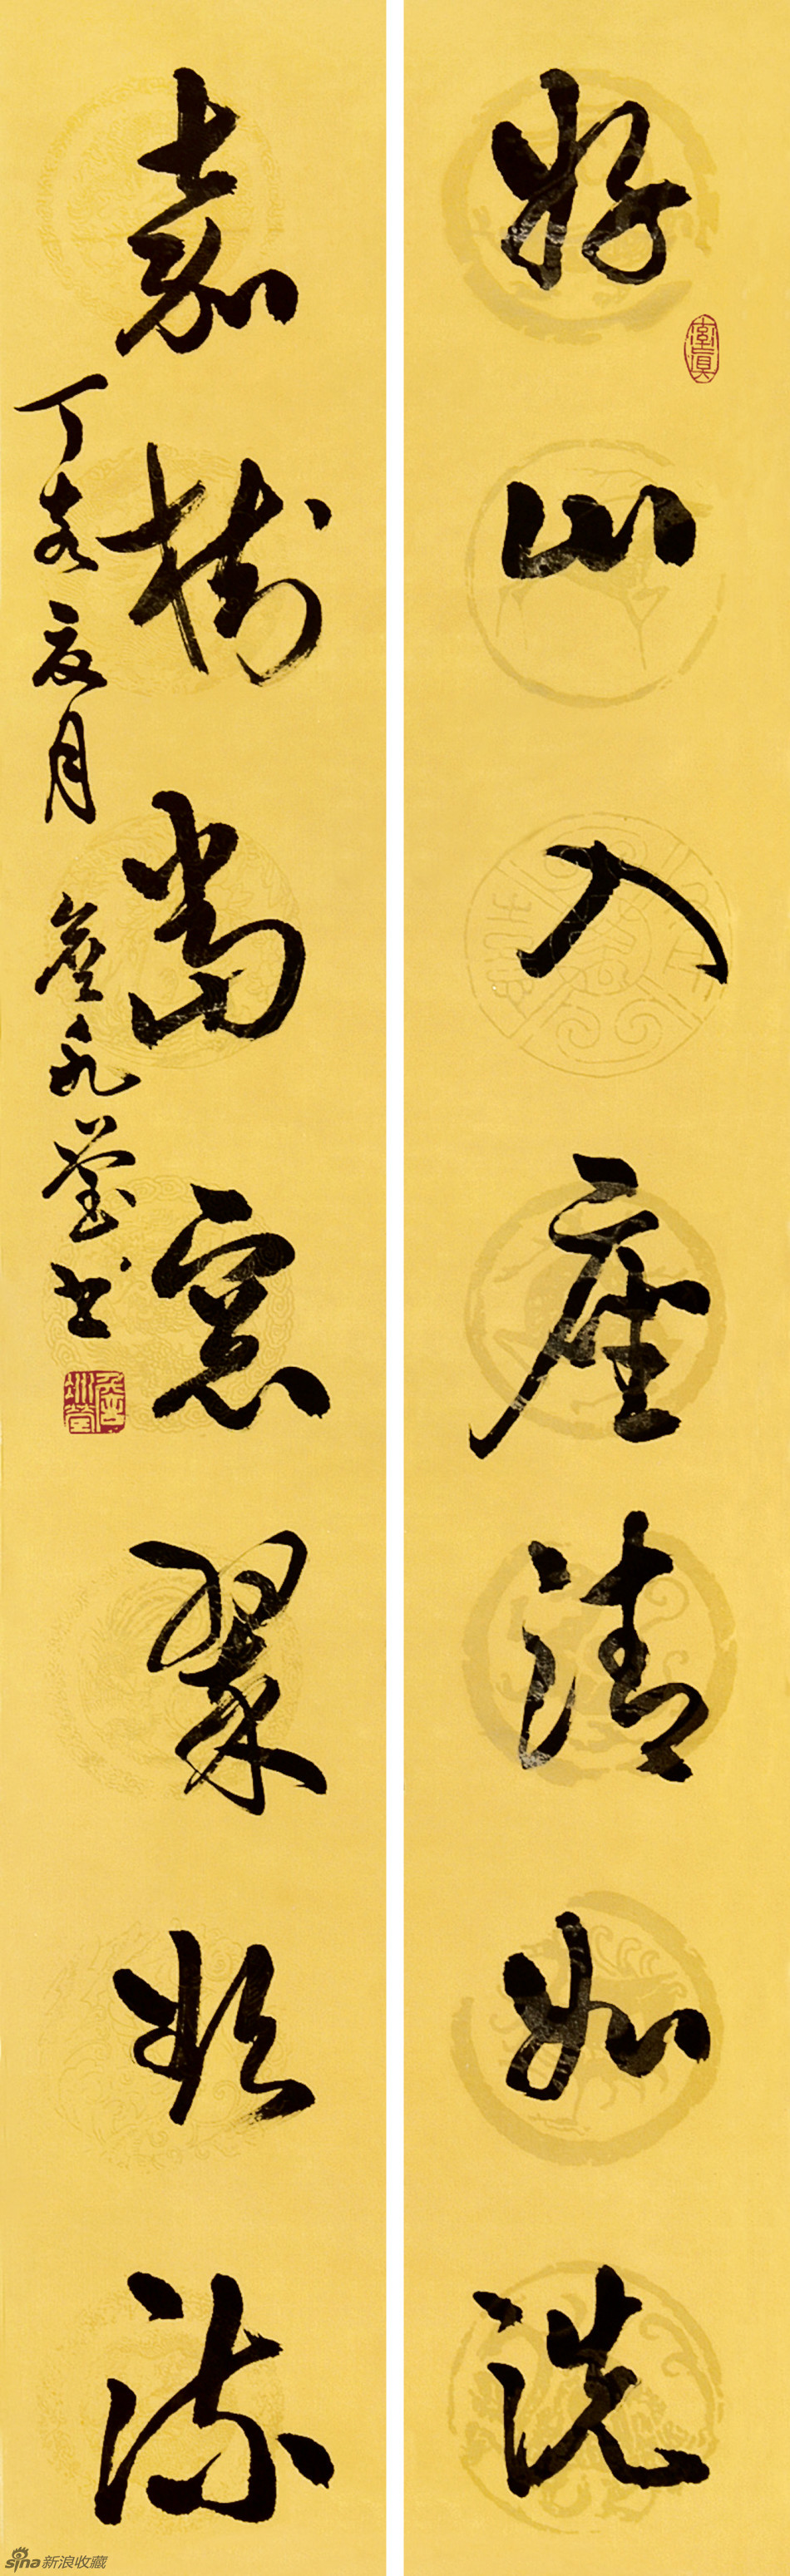 好山入座清如洗
嘉樹當窗翠欲流
丁亥夏月
永瑩書
sina新浪收藏